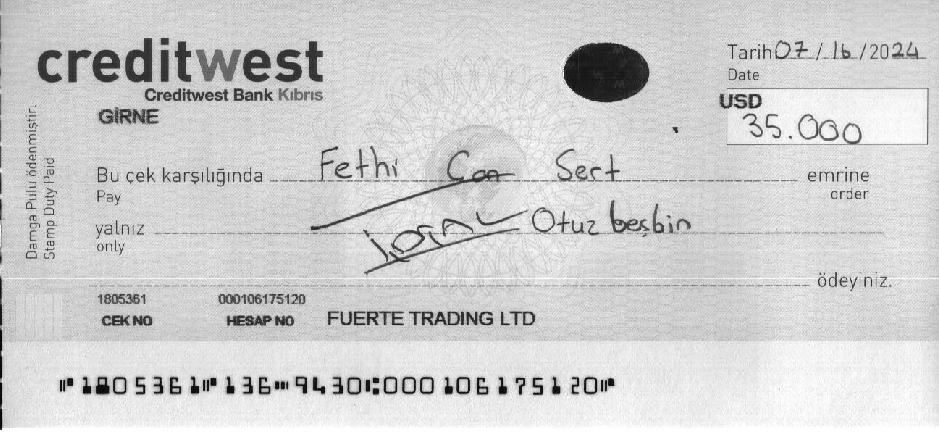 creditwest
Creditwest Bank Kıbrıs
GİRNE
Tarih 07/16/2024
Date
USD
35.000
Damga Pulu ödenmiştir.
Stamp Duty Paid
Bu çek karşılığında Fethi Can Sert emrine
Pay order
yalnız İPTAL Otuz beşbin
only
ödeyiniz.
1805361 000106175120
CEK NO HESAP NO FUERTE TRADING LTD
⑈1805361⑈136⑉9430⑆000106175120⑈